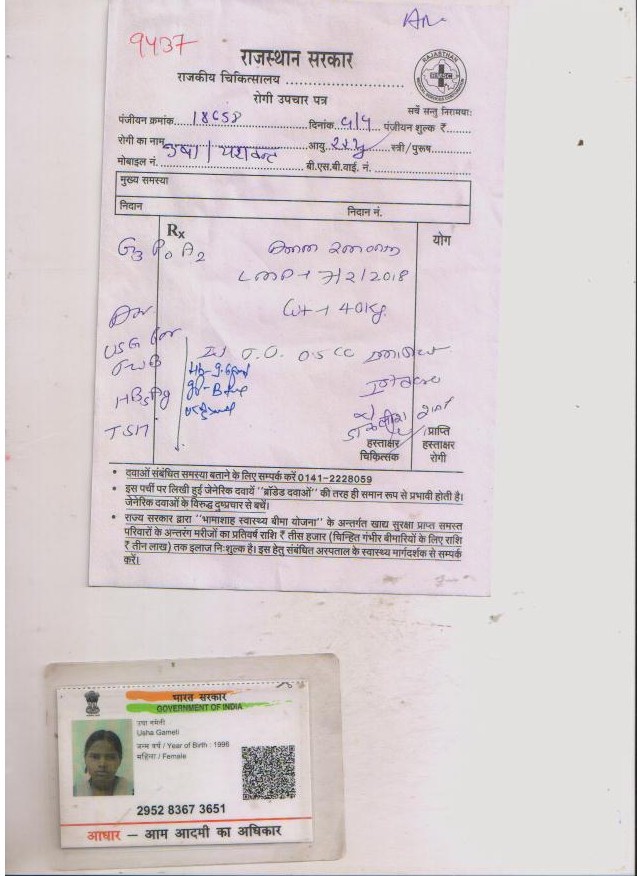 9437
राजस्थान सरकार
राजकीय चिकित्सालय ........................
रोगी उपचार पत्र
RAJASTHAN
सर्वे सन्तु निरामयाः
पंजीयन क्रमांक 18658 दिनांक 4/4 पंजीयन शुल्क ₹
रोगी का नाम उषा / यशवन्त आयु 22y स्त्री/पुरूष
मोबाइल नं. बी.एस.बी.वाई. नं.
मुख्य समस्या
निदान निदान नं.
Rx योग
G3 P0 A2
LMP → 7/2/2018
Wt → 40Kg
USG for
FWB
HBsAg
TSH
Inj T.T. 0.5 CC
हस्ताक्षर चिकित्सक
प्राप्ति हस्ताक्षर रोगी
• दवाओं संबंधित समस्या बताने के लिए सम्पर्क करें 0141-2228059
• इस पर्ची पर लिखी हुई जेनेरिक दवायें ''ब्रॉडेड दवाओं'' की तरह ही समान रूप से प्रभावी होती है।
जेनेरिक दवाओं के विरुद्ध दुष्प्रचार से बचें।
• राज्य सरकार द्वारा ''भामाशाह स्वास्थ्य बीमा योजना'' के अन्तर्गत खाद्य सुरक्षा प्राप्त समस्त
परिवारों के अन्तरंग मरीजों का प्रतिवर्ष राशि ₹ तीस हजार (चिन्हित गंभीर बीमारियों के लिए राशि
₹ तीन लाख) तक इलाज निःशुल्क है। इस हेतु संबंधित अस्पताल के स्वास्थ्य मार्गदर्शक से सम्पर्क
करें।
भारत सरकार
GOVERNMENT OF INDIA
उषा गमेती
Usha Gameti
जन्म वर्ष / Year of Birth : 1996
महिला / Female
2952 8367 3651
आधार – आम आदमी का अधिकार